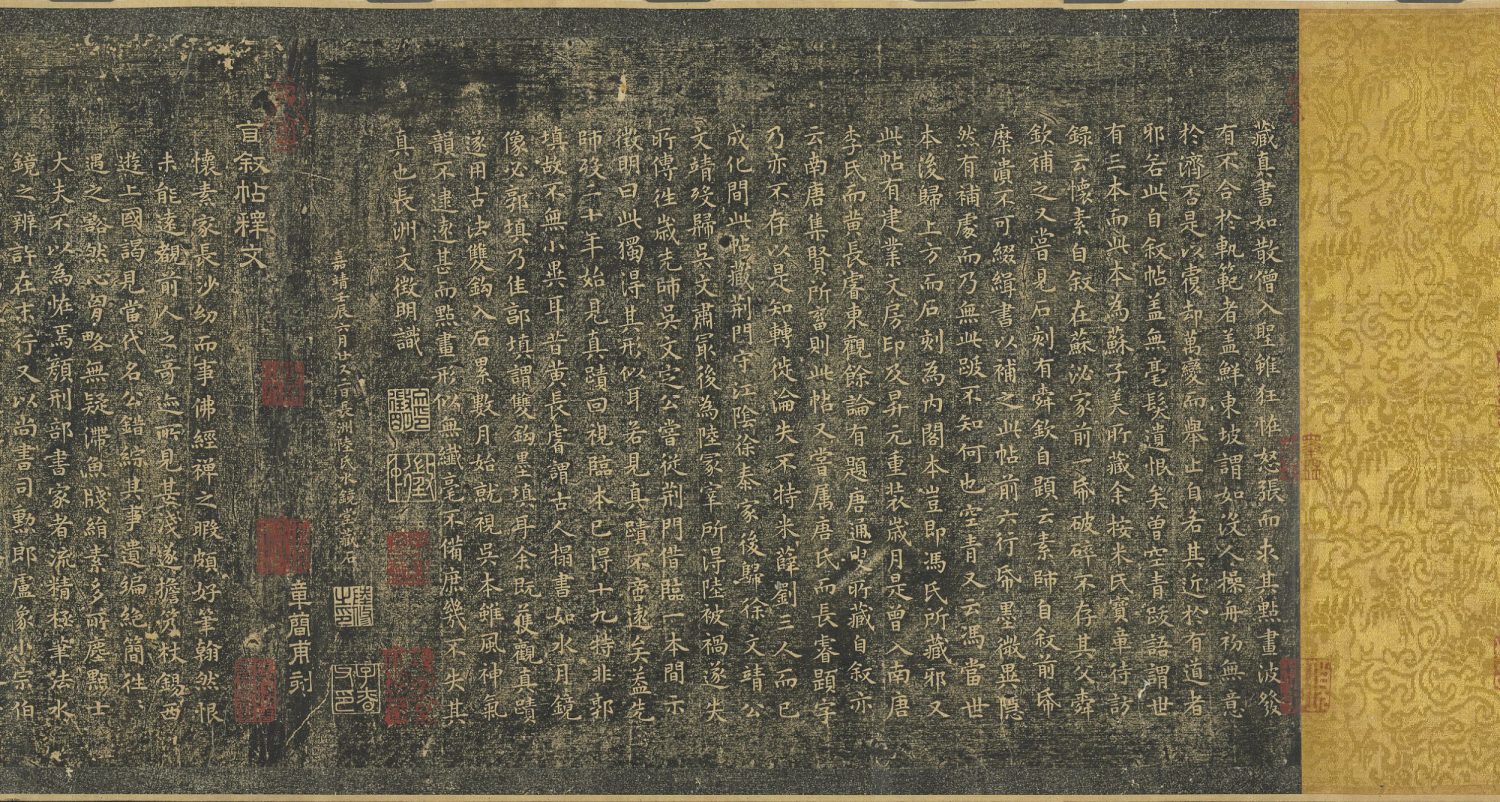 藏真書如散僧入聖雖狂怪怒張而求其點畫波發
有不合於軌範者蓋鮮東坡謂如沒人操舟初無意
於濟否是以覆却萬變而舉止自若其近於有道者
邪若此自叙帖蓋無毫髮遺恨矣曽空青跋語謂世
有三本而此本為蘇子美所藏余按米氏寶章待訪
録云懷素自叙在蘇泌家前一帋破碎不存其父舜
欽補之又嘗見石刻有舜欽自題云素師自叙前帋
糜潰不可綴緝書以補之此帖前六行帋墨微異隱
然有補處而乃無此跋不知何也空青又云馮當世
本後歸上方而石刻為内閣本豈即馮氏所藏邪又
此帖有建業文房印及昇元重裝歲月是曽入南唐
李氏而黄長睿東觀餘論有題唐通叟所藏自叙亦
云南唐集賢所畜則此帖又嘗屬唐氏而長睿題字
乃亦不存以是知轉徙淪失不特米薛劉三人而已
成化間此帖藏荆門守江陰徐泰家後歸徐文靖公
文靖殁歸吳文肅最後為陸冢宰所得陸被禍遂失
所傳往歲先師吳文定公嘗從荆門借臨一本間示
徵明曰此獨得其形似耳若見真蹟不啻遠矣蓋先
師殁二十年始見真蹟回視臨本已得十九特非郭
填故不無小異耳昔黄長睿謂古人搨書如水月鏡
像必郭填乃佳郭填謂雙鈎墨填耳余既獲觀真蹟
遂用古法雙鈎入石累數月始就視吳本雖風神氣
韻不逮遠甚而點畫形似無纖毫不備庶幾不失其
真也長洲文徵明識
嘉靖壬辰六月廿又二日長洲陸氏水鏡堂石
章簡甫刻
自叙帖釋文
懷素家長沙幼而事佛經禪之暇頗好筆翰然恨
未能遠覩前人之奇迹所見甚淺遂擔笈杖錫西
遊上國謁見當代名公錯綜其事遺編絶簡往〻
遇之豁然心胷略無疑滯魚牋絹素多所塵點士
大夫不以為恠焉顔刑部書家者流精極筆法水
鏡之辨許在末行又以尚書司勳郎盧象小宗伯